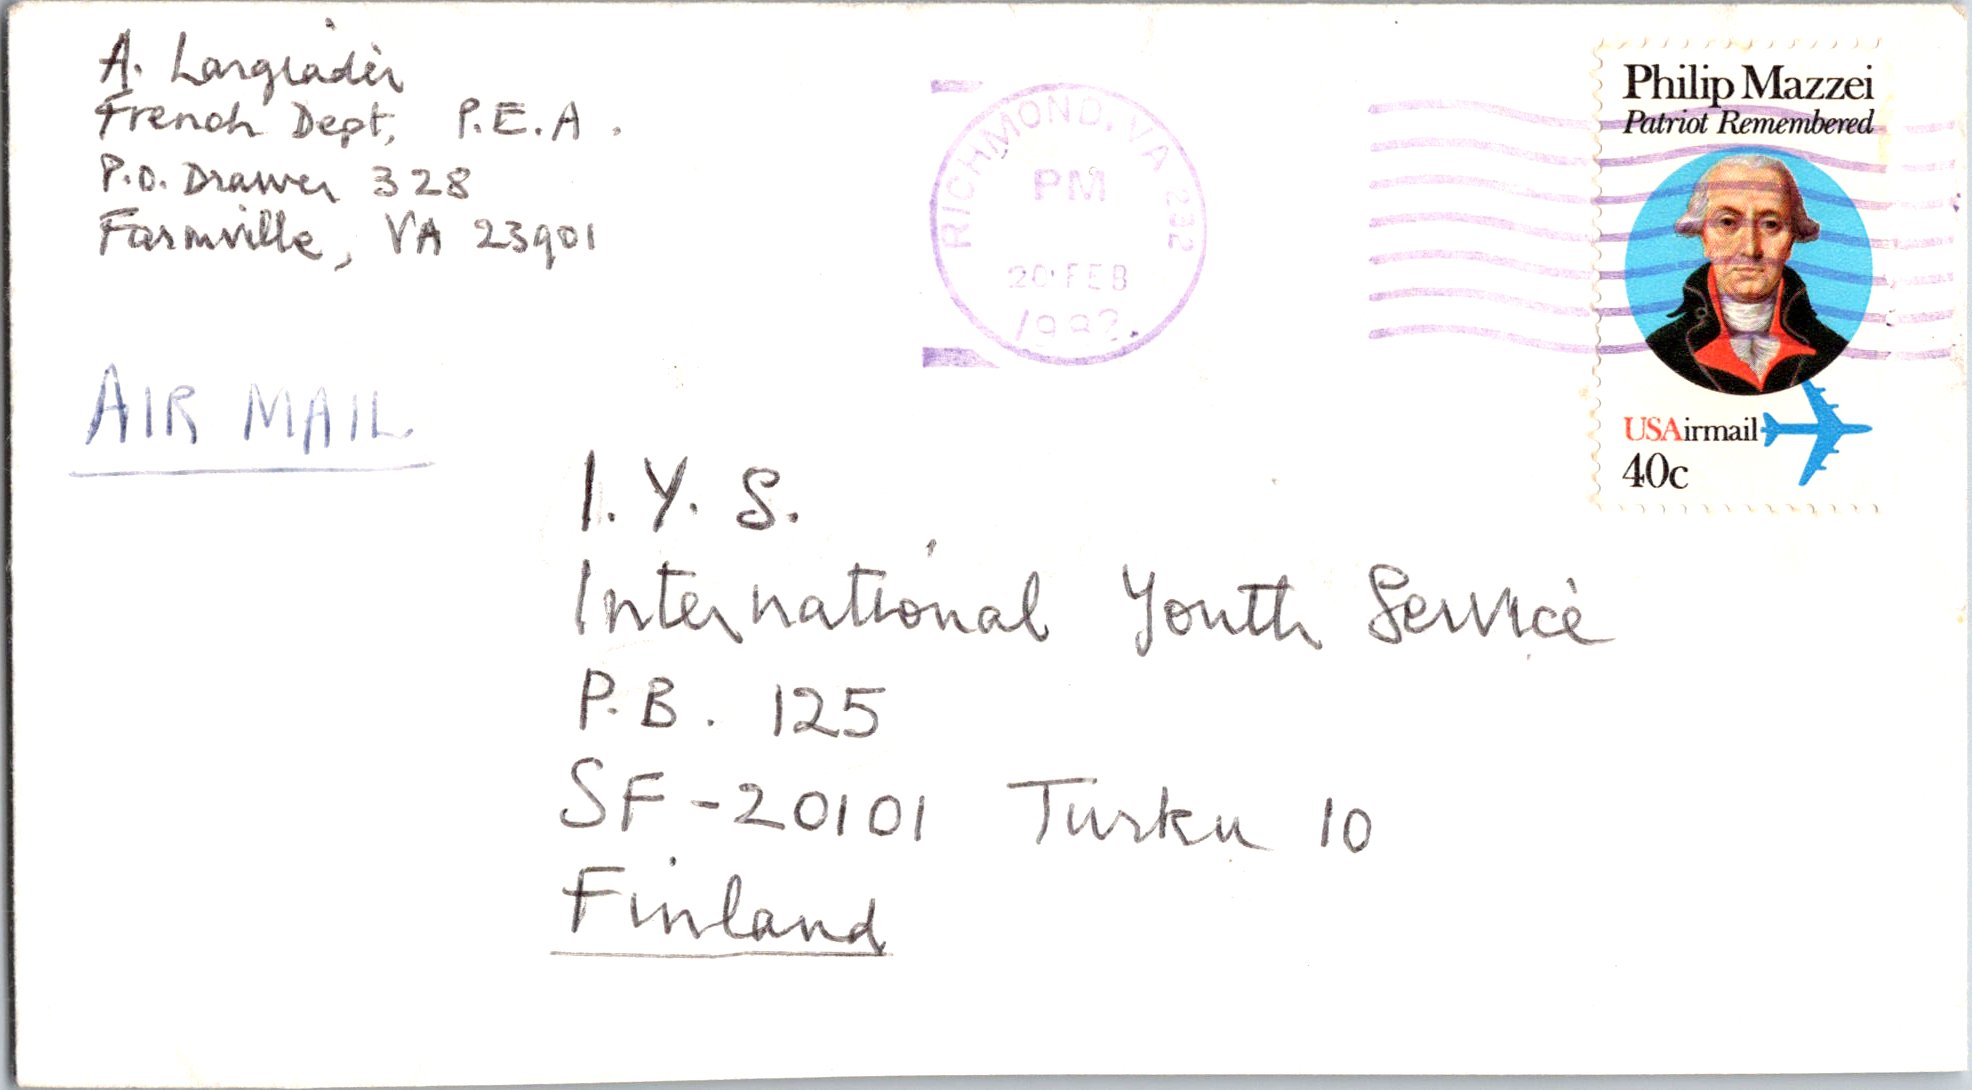 A. Langladèr
French Dept, P.E.A.
P.O. Drawer 328
Farmville, VA 23901
RICHMOND, VA 232
PM
20 FEB
1982
Philip Mazzei
Patriot Remembered
USAirmail
40c
AIR MAIL
I. Y. S.
International Youth Service
P.B. 125
SF-20101 Turku 10
Finland